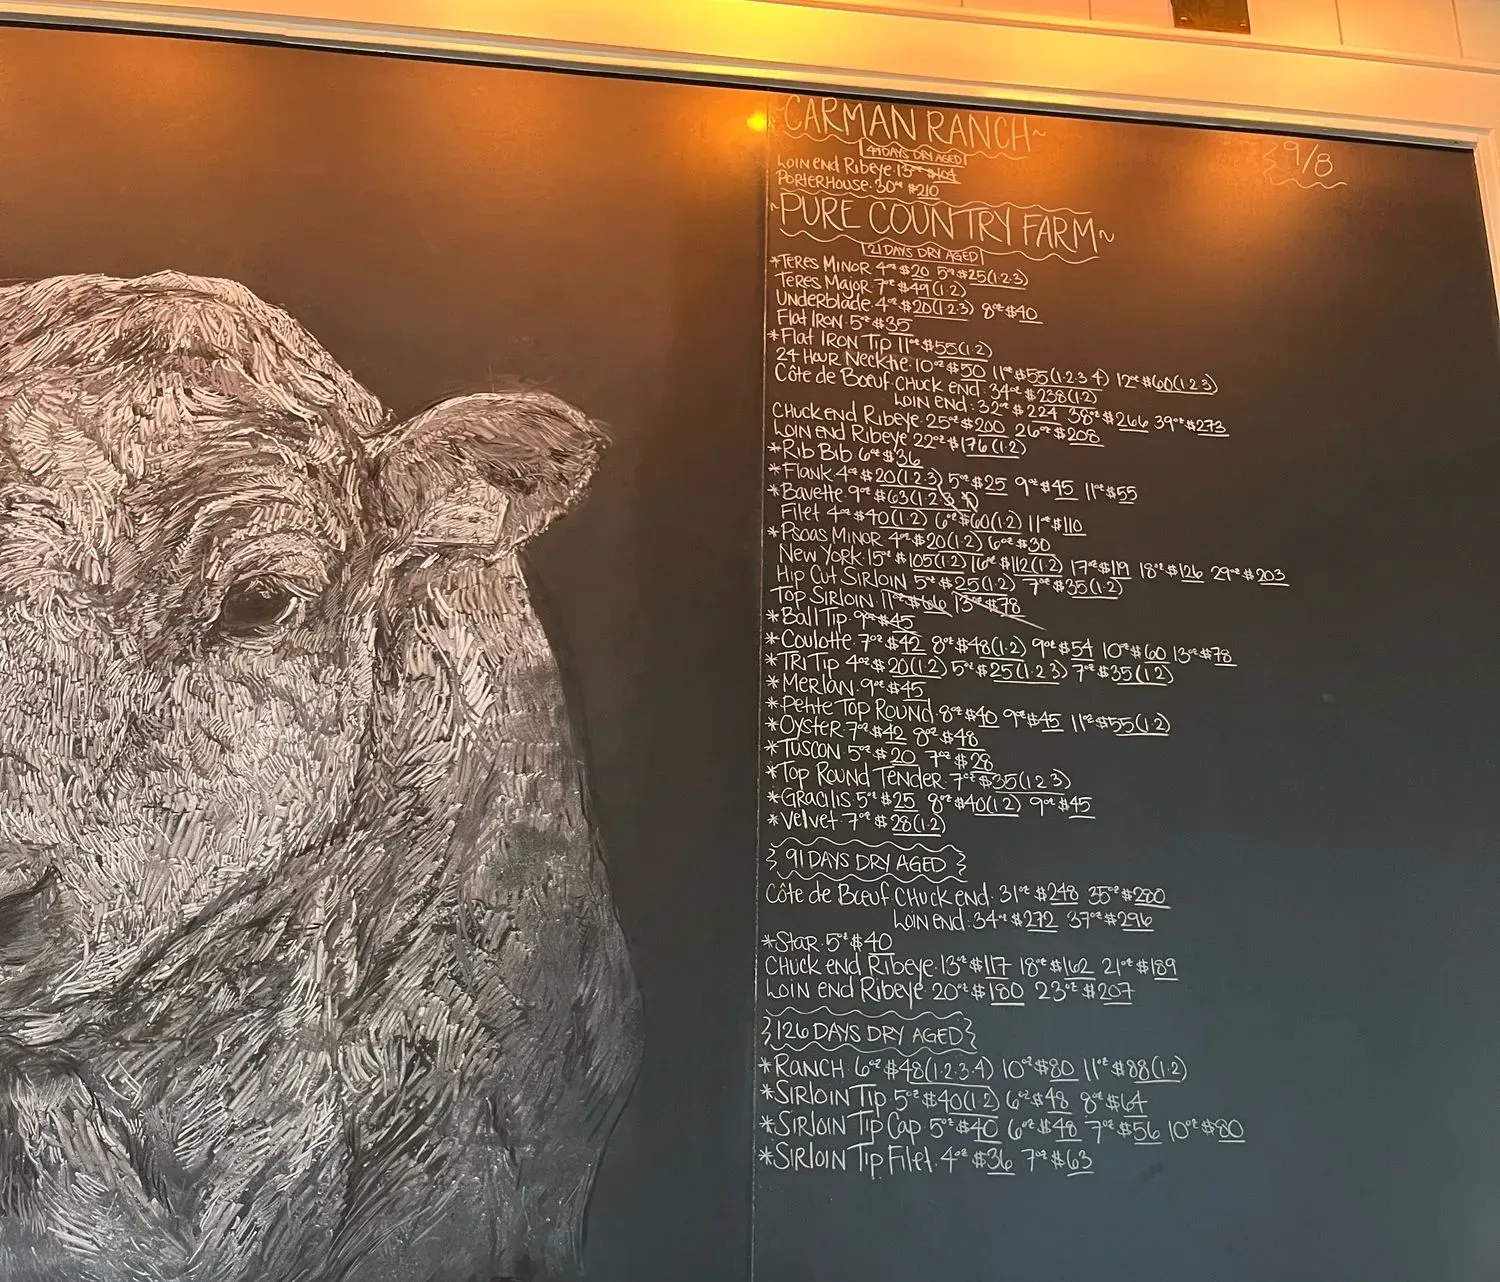 ~CARMAN RANCH~
9/8
49 DAYS DRY AGED
LOIN END RIBEYE 13oz $104
PORTERHOUSE 30oz $210
~PURE COUNTRY FARM~
21 DAYS DRY AGED
*TERES MINOR 4oz $20 5oz $25(1·2·3)
TERES MAJOR 7oz $49(1·2)
UNDERBLADE 4oz $20(1·2·3) 8oz $40
FLAT IRON 5oz $35
*FLAT IRON TIP 11oz $55(1·2)
24 HOUR NECKTIE 10oz $50 11oz $55(1·2·3·4) 12oz $60(1·2·3)
CÔTE DE BOEUF CHUCK END: 34oz $238(1·2)
LOIN END: 32oz $224 38oz $266 39oz $273
CHUCK END RIBEYE 25oz $200 26oz $208
LOIN END RIBEYE 22oz $176(1·2)
*RIB BIB 6oz $36
*FLANK 4oz $20(1·2·3) 5oz $25 9oz $45 11oz $55
*BAVETTE 9oz $63(1·2
FILET 4oz $40(1·2) 6oz $60(1·2) 11oz $110
*PSOAS MINOR 4oz $20(1·2) 6oz $30
NEW YORK 15oz $105(1·2) 16oz $112(1·2) 17oz $119 18oz $126 29oz $203
HIP CUT SIRLOIN 5oz $25(1·2) 7oz $35(1·2)
TOP SIRLOIN 11oz 13oz $78
*BALL TIP 9oz $45
*COULOTTE 7oz $42 8oz $48(1·2) 9oz $54 10oz $60 13oz $78
*TRI TIP 4oz $20(1·2) 5oz $25(1·2·3) 7oz $35(1·2)
*MERLAN 9oz $45
*PETITE TOP ROUND 8oz $40 9oz $45 11oz $55(1·2)
*OYSTER 7oz $42 8oz $48
*TUSCON 5oz $20 7oz $28
*TOP ROUND TENDER 7oz $35(1·2·3)
*GRACILIS 5oz $25 8oz $40(1·2) 9oz $45
*VELVET 7oz $28(1·2)
91 DAYS DRY AGED
CÔTE DE BOEUF CHUCK END: 31oz $248 35oz $280
LOIN END: 34oz $272 37oz $296
*STAR 5oz $40
CHUCK END RIBEYE 13oz $117 18oz $162 21oz $189
LOIN END RIBEYE 20oz $180 23oz $207
126 DAYS DRY AGED
*RANCH 6oz $48(1·2·3·4) 10oz $80 11oz $88(1·2)
*SIRLOIN TIP 5oz $40(1·2) 6oz $48 8oz $64
*SIRLOIN TIP CAP 5oz $40 6oz $48 7oz $56 10oz $80
*SIRLOIN TIP FILET 4oz $36 7oz $63